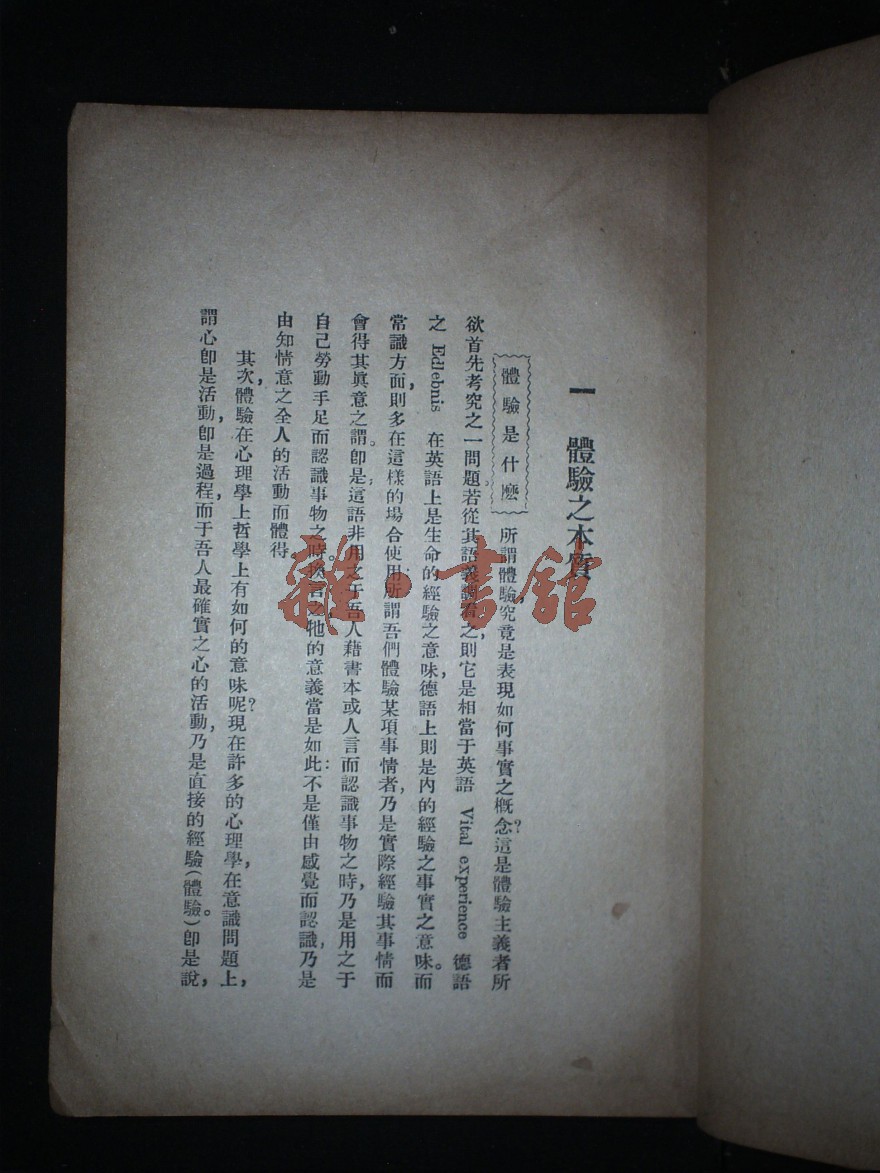 一 體驗之本質
體驗是什麽
所謂體驗，究竟是表現如何事實之槪念？這是體驗主義者所
欲首先考究之一問題。若從其語義調看之，則它是相當于英語 Vital experience 德語
之 Edlebnis 在英語上是生命的經驗之意味，德語上則是內的經驗之事實之意味。而
常識方面，則多在這樣的場合使用：所謂吾們體驗某項事情者，乃是實際經驗其事情而
會得其眞意之謂。卽是，這語非用之于吾人藉書本或人言而認識事物之時，乃是用之于
自己勞動手足而認識事物之時。換言之，牠的意義當是如此：不是僅由感覺而認識，乃是
由知情意之全人的活動而體得
其次，體驗在心理學上哲學上有如何的意味呢？現在許多的心理學，在意識問題上，
謂心卽是活動，卽是過程，而于吾人最確實之心的活動，乃是直接的經驗（體驗）。卽是說，
雜·書館